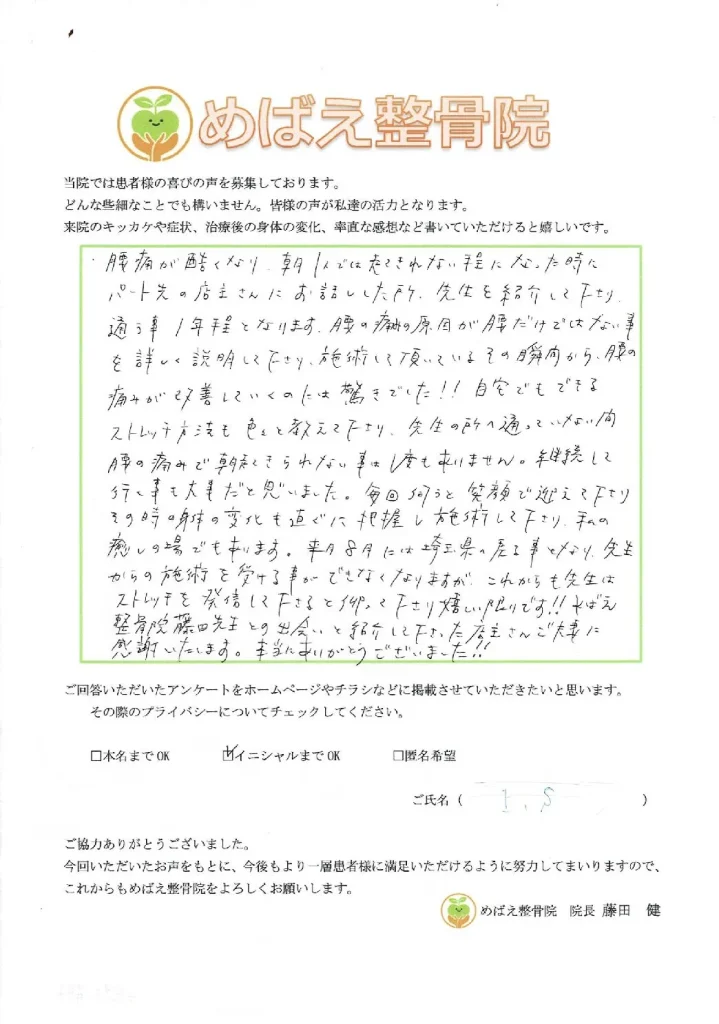 めばえ整骨院
当院では患者様の喜びの声を募集しております。
どんな些細なことでも構いません。皆様の声が私達の活力となります。
来院のキッカケや症状、治療後の身体の変化、率直な感想など書いていただけると嬉しいです。
腰痛が酷くなり、朝1人では起きれない程になった時に
パート先の店主さんにお話しした所、先生を紹介して下さり、
通う事1年程となります。腰の痛みの原因が腰だけではない事
を詳しく説明して下さり、施術して頂いているその瞬間から、腰の
痛みが改善していくのには驚きでした!! 自宅でもできる
ストレッチ方法も色々と教えて下さり、先生の所へ通っていない間
腰の痛みで朝起きられない事は1度も有りません。継続して
行く事も大事だと思いました。毎回伺うと笑顔で迎えて下さり
その時の身体の変化も直ぐに把握し施術して下さり、私の
癒しの場でも有ります。来月8月には埼玉県へ戻る事となり、先生
からの施術を受ける事ができなくなりますが、これからも先生は
ストレッチを発信して下さると仰って下さり嬉しい限りです!! めばえ
整骨院藤田先生との出会いと紹介して下さった店主さんご夫妻に
感謝いたします。本当にありがとうございました!!
ご回答いただいたアンケートをホームページやチラシなどに掲載させていただきたいと思います。
その際のプライバシーについてチェックしてください。
□本名までOK ☑イニシャルまでOK □匿名希望
ご氏名（ I.S ）
ご協力ありがとうございました。
今回いただいたお声をもとに、今後もより一層患者様に満足いただけるように努力してまいりますので、
これからもめばえ整骨院をよろしくお願いします。
めばえ整骨院 院長 藤田 健